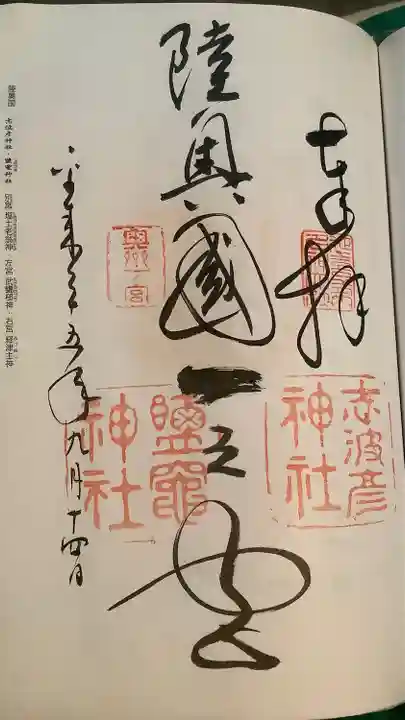 奉拝
志波彦
神社
陸奥國一之宮
奥州一宮
鹽竈
神社
令和五年九月十四日
陸奥国 志波彦神社・鹽竈神社 別宮 塩土老翁神・左宮 武甕槌神・右宮 経津主神